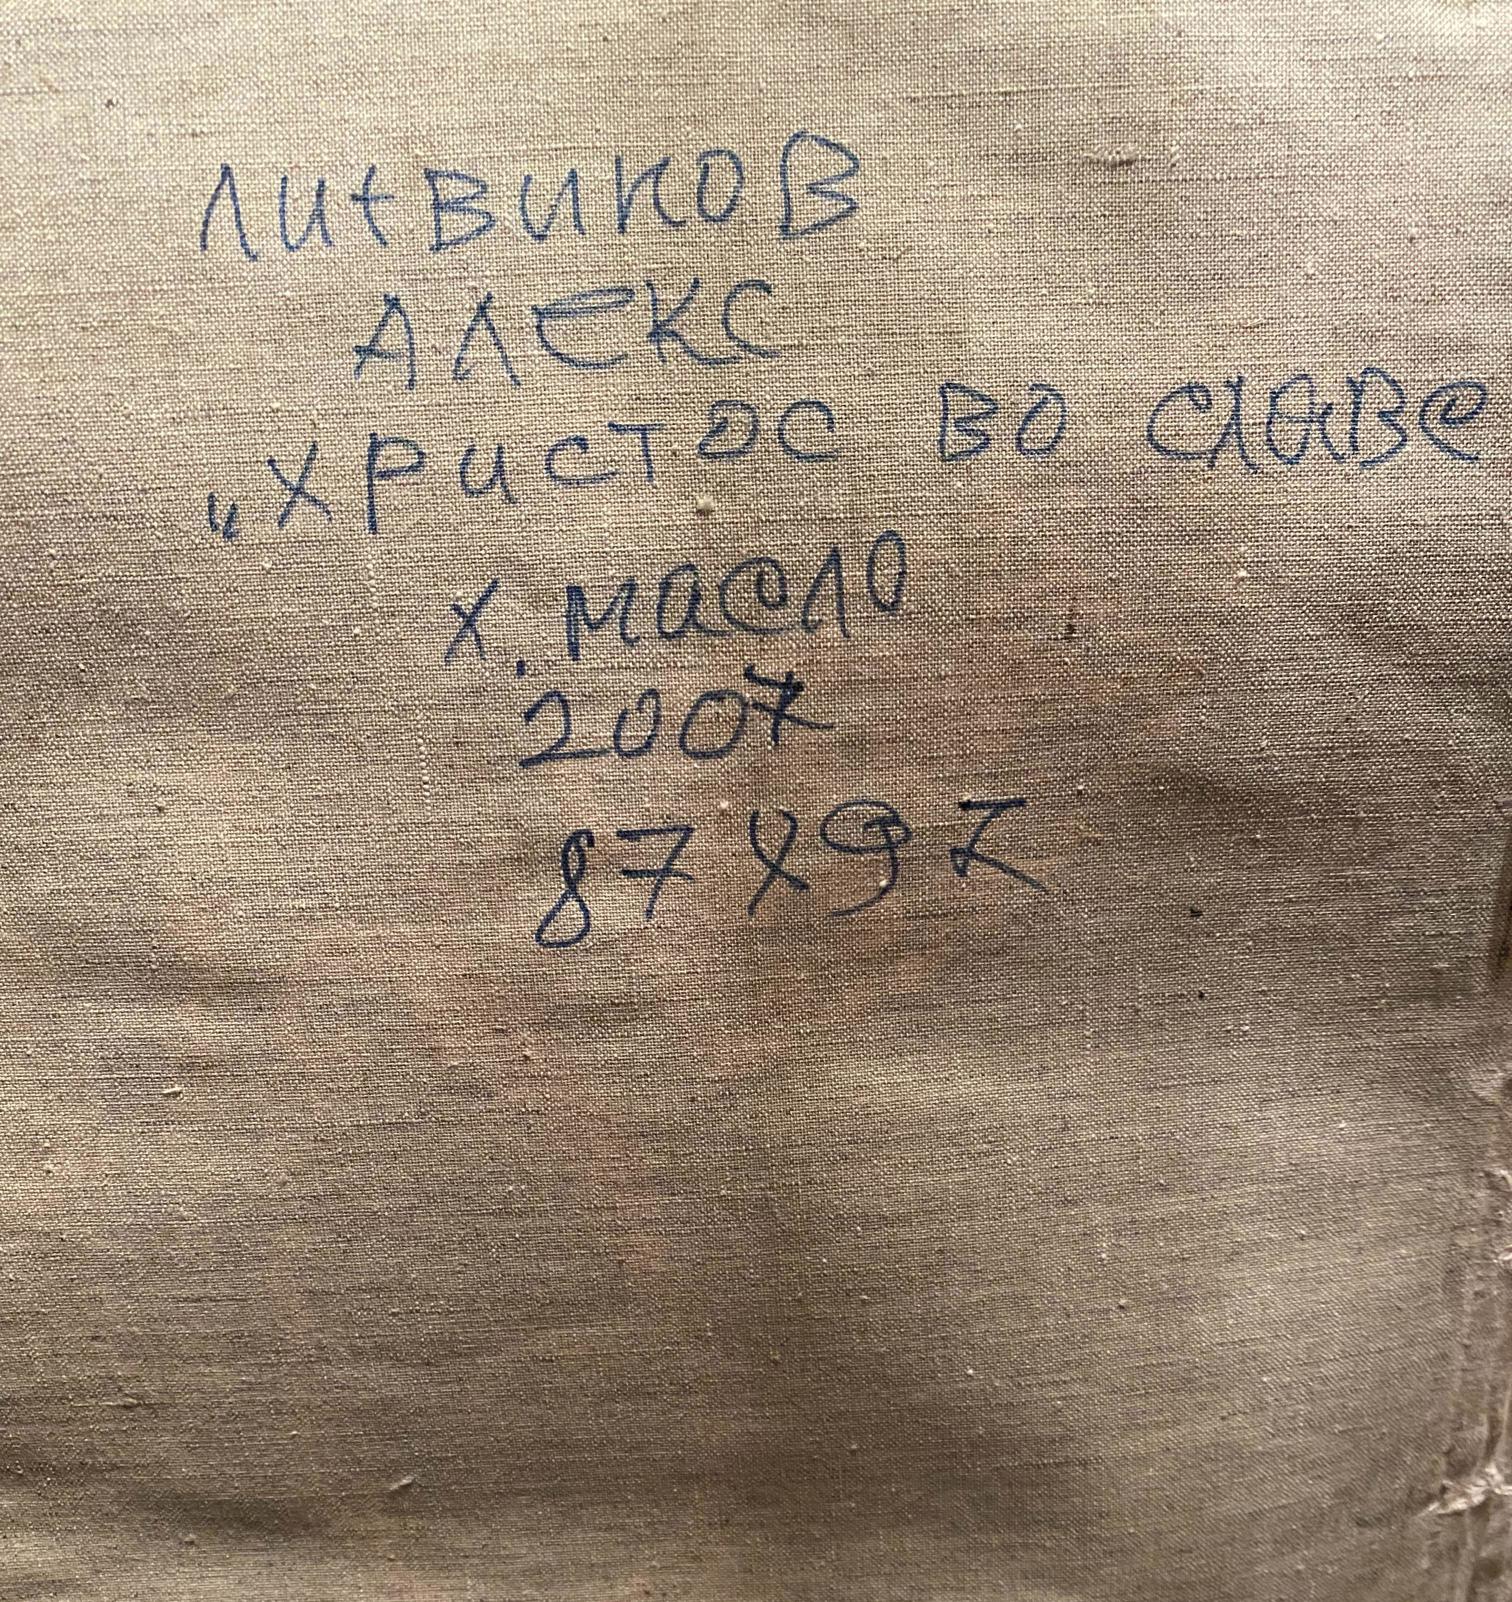 Литвиков
АЛЕКС
„ХРИСТОС ВО СЛАВЕ
х. масло
2007
87х97